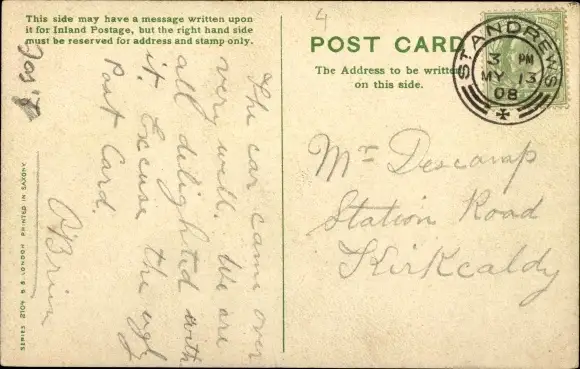 This side may have a message written upon
it for Inland Postage, but the right hand side
must be reserved for address and stamp only.
The car came over
very well. We are
all delighted with
it. Excuse the ugly
Post Card.
O'Brien
SERIES 2109 B. B. LONDON PRINTED IN SAXONY
4
POST CARD
The Address to be written
on this side.
ST ANDREWS
3 PM
MY 13
08
Mr Descamp
Station Road
Kirkcaldy